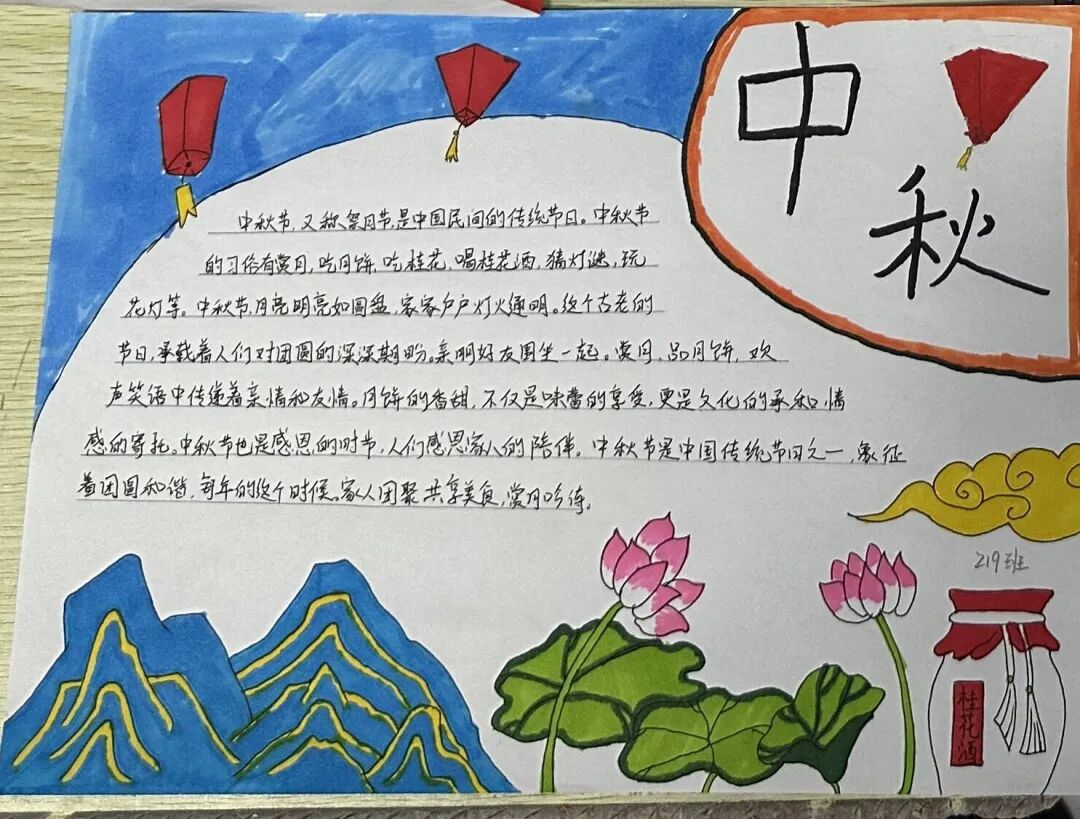 中秋
中秋节,又称祭月节,是中国民间的传统节日。中秋节
的习俗有赏月,吃月饼,吃桂花、喝桂花酒,猜灯谜,玩
花灯等。中秋节,月亮明亮如圆盘,家家户户灯火通明。这个古老的
节日,承载着人们对团圆的深深期盼。亲朋好友围坐一起。赏月,品月饼,欢
声笑语中传递着亲情和友情。月饼的香甜,不仅是味蕾的享受,更是文化的承和情
感的寄托。中秋节也是感恩的时节,人们感恩家人的陪伴。中秋节是中国传统节日之一,象征
着团圆和谐,每年的这个时候。家人团聚共享美食,赏月吟诗。
219班
桂花酒